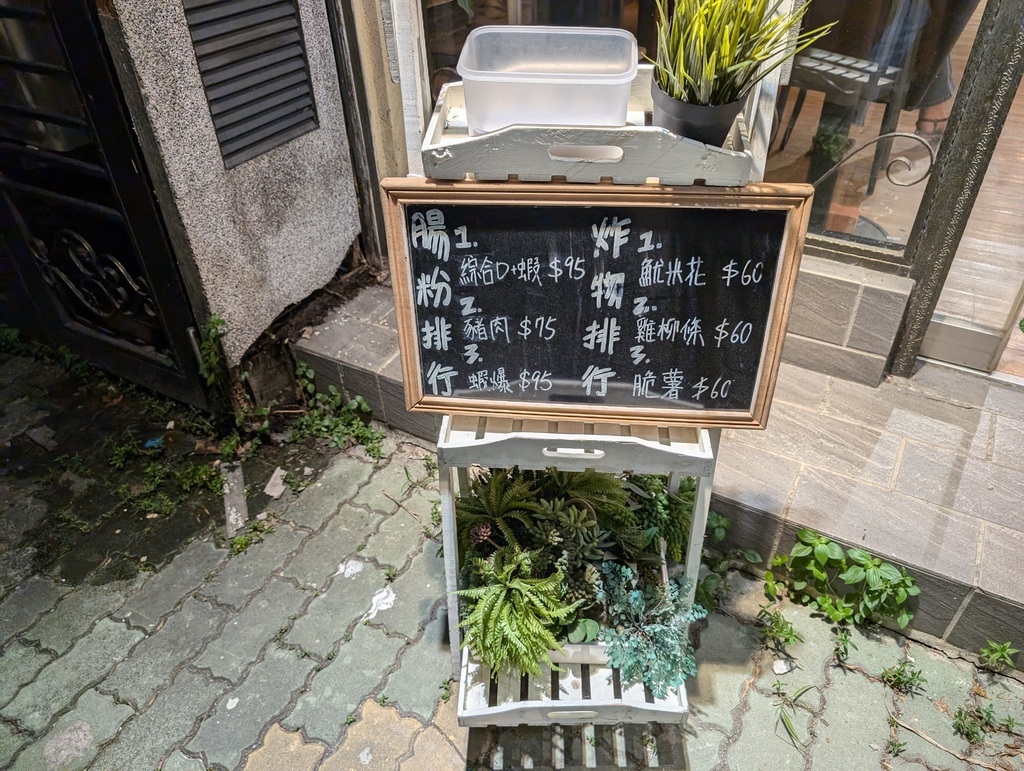 腸粉排行
1.
綜合D+蝦 $95
2.
豬肉 $75
3.
蝦爆 $95
炸物排行
1.
魷米花 $60
2.
雞柳條 $60
3.
脆薯 $60